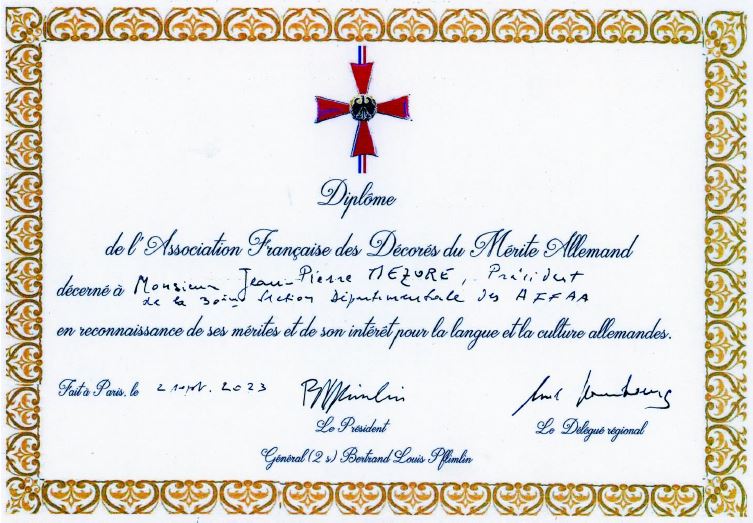 Diplôme
de l'Association Française des Décorés du Mérite Allemand
décerné à Monsieur Jean-Pierre MEZURE, Président
de la 30ème Section Départementale des AFFAA
en reconnaissance de ses mérites et de son intérêt pour la langue et la culture allemandes.
Fait à Paris, le 2 sept. 2023 BPflimlin
Le Président Le Délégué régional
Général (2 s) Bertrand Louis Pflimlin